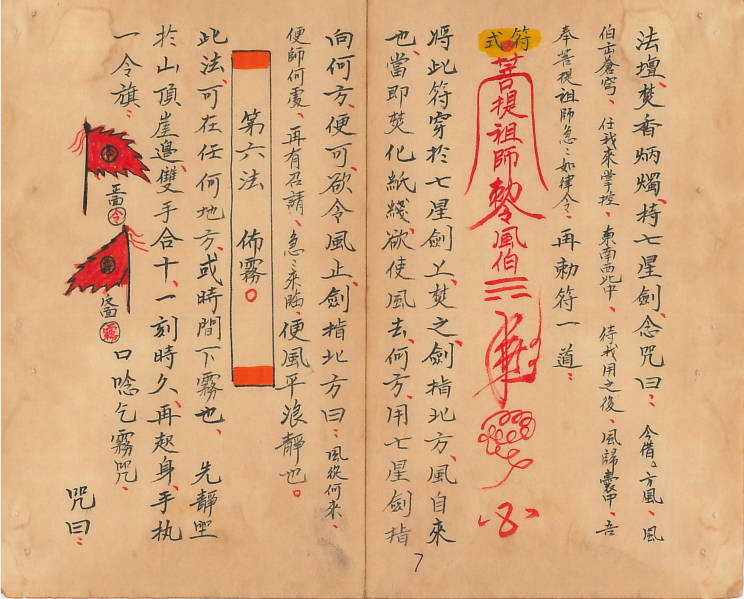 法壇、焚香炳燭、持七星劍、念咒曰：今借。方風、風
伯击蒼穹、任我來掌控、東南西北中、待我用之後、風歸囊中、吾
奉菩提祖師急〻如律令、再勅符一道：
符式
菩提祖師勅令風伯
將此符穿於七星劍上、焚之、劍指北方、風自來
也、當即焚化紙錢、欲使風去、何方、用七星劍指
7
向何方、便可、欲令風止、劍指北方曰：風從何來、
便師何處、再有召請、急〻來臨、便風平浪靜也。
第六法 佈霧。
此法、可在任何地方、或時間下霧也、先靜坐
於山頂崖邊、雙手合十、一刻時久、再起身、手执
一令旗、
令
正面令
霧
反面霧
口唸乞霧咒、
咒曰：